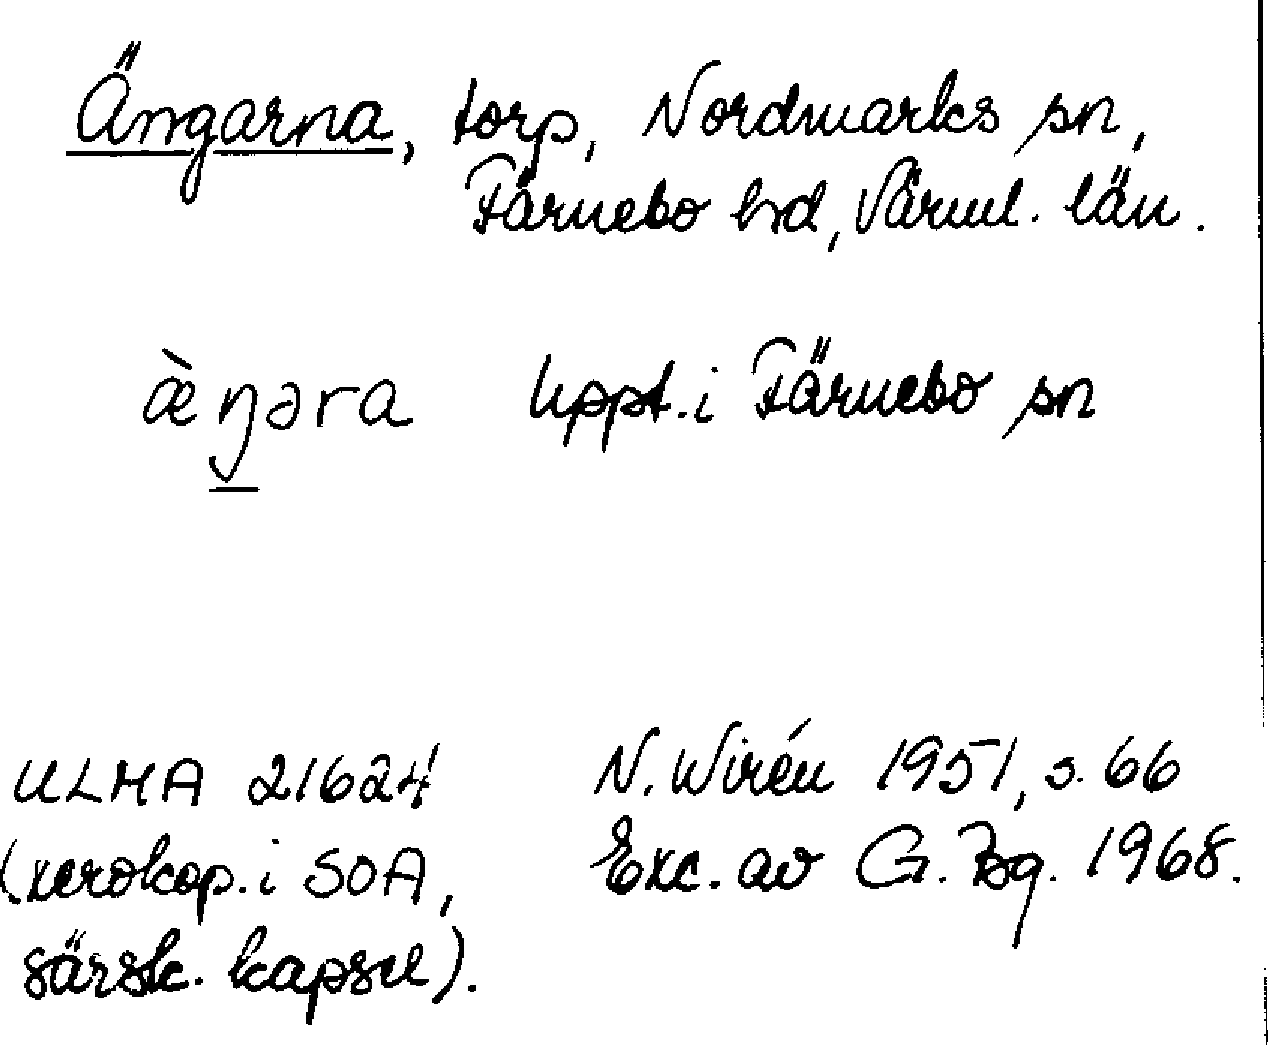 Ängarna, torp, Nordmarks sn,
Färnebo hd, Värml. län.
æ̀ŋəra uppt. i Färnebo sn
ULMA 21624
(xerokop. i SOA,
särsk. kapsel).
N. Wirén 1951, s. 66
Exc. av G. Bg. 1968.